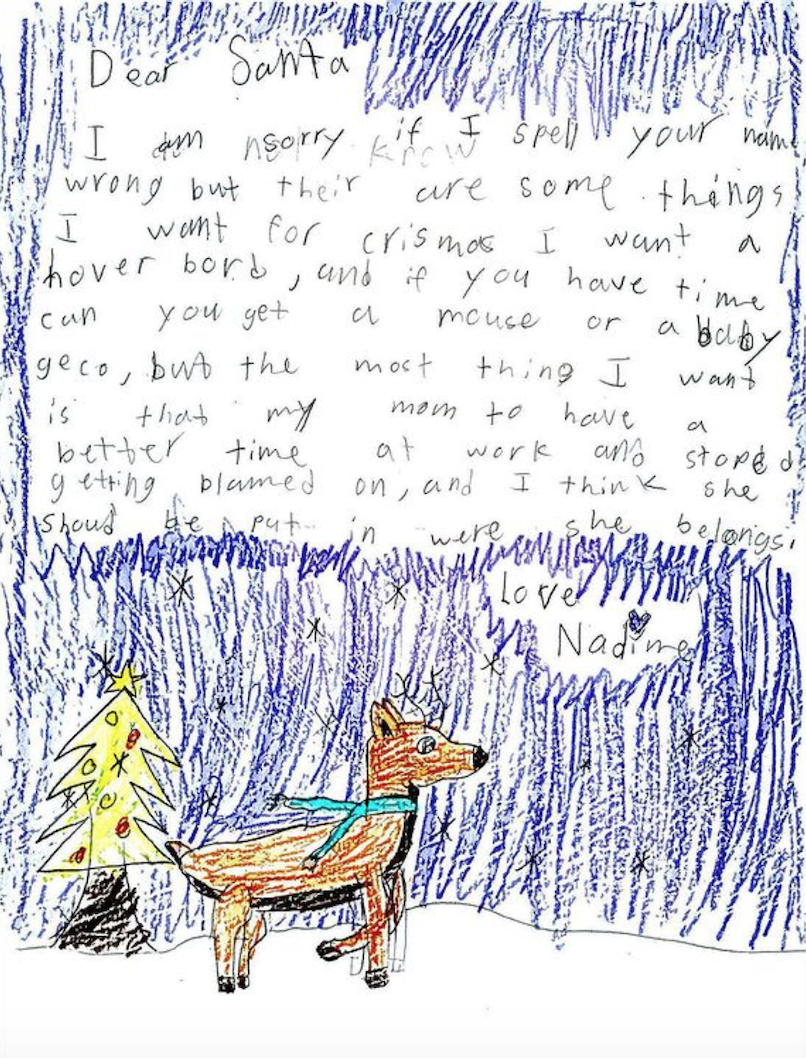 Dear Santa
I am sorry if I spell your name
wrong but their are some things
I want for crismas I want a
hover bord, and if you have time
can you get a mouse or a baby
geco, but the most thing I want
is that my mom to have a
better time at work and stoped
getting blamed on, and I think she
shoud be put in were she belongs.
Love
Nadine